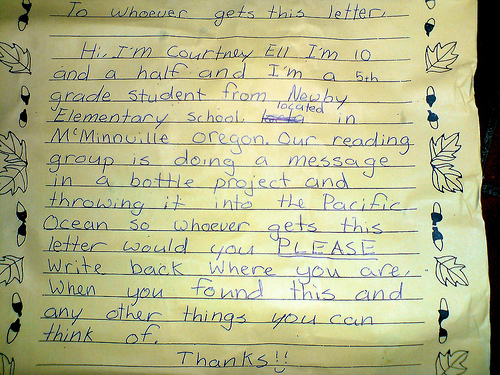 To whoever gets this letter,
Hi, I'm Courtney Ell I'm 10
and a half and I'm a 5th
grade student from Newby
Elementary school located in
McMinnville oregon. Our reading
group is doing a message
in a bottle project and
throwing it into the Pacific
Ocean so whoever gets this
letter would you PLEASE
Write back Where you are,
When you found this and
any other things you can
think of.
Thanks!!